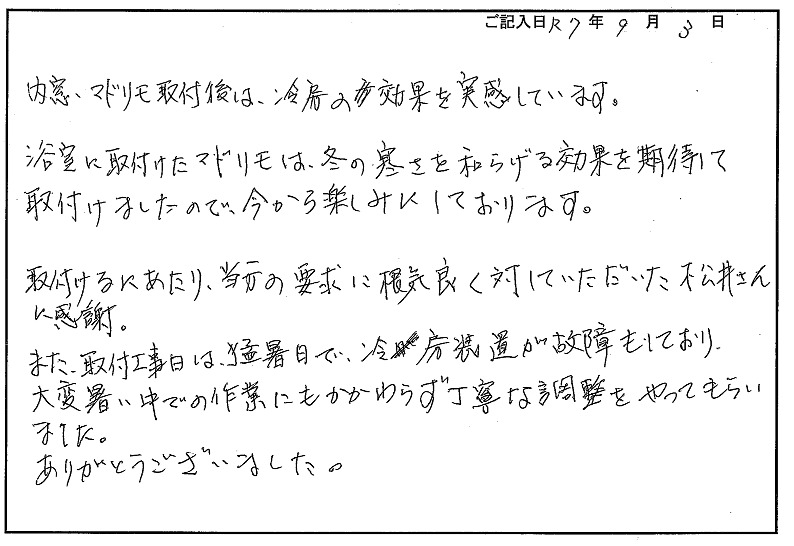 ご記入日 R7年 9月 3日
内窓、マドリモ取付後は、冷房の効果を実感しています。
浴室に取付けたマドリモは、冬の寒さを和らげる効果を期待して
取付けましたので、今から楽しみにしております。
取付けるにあたり、当方の要求に根気良く対していただいた松井さん
に感謝。
また、取付工事日は、猛暑日で、冷房装置が故障もしており、
大変暑い中での作業にもかかわらず丁寧な調整をやってもらい
ました。
ありがとうございました。